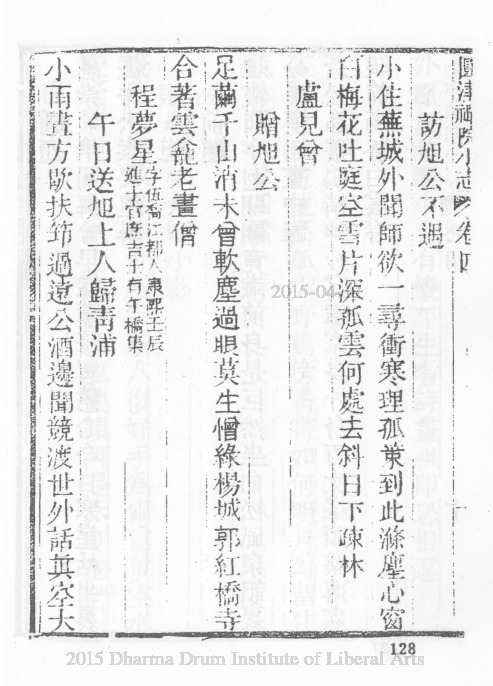 圓津禪院小志 卷四
訪旭公不遇
小住蕪城外聞師欲一尋衝寒理孤策到此滌塵心窗
白梅花吐庭空雪片深孤雲何處去斜日下疎林
盧見曾
贈旭公
足繭千山消未曾軟塵過眼莫生憎綠楊城郭紅橋寺
合著雲龕老畫僧
程夢星字伍喬江都人康熙壬辰進士官庶吉士有午橋集
午日送旭上人歸青浦
小雨晝方歇扶筇過遠公酒邊聞競渡世外話真空大
2015-04
128
2015 Dharma Drum Institute of Liberal Arts